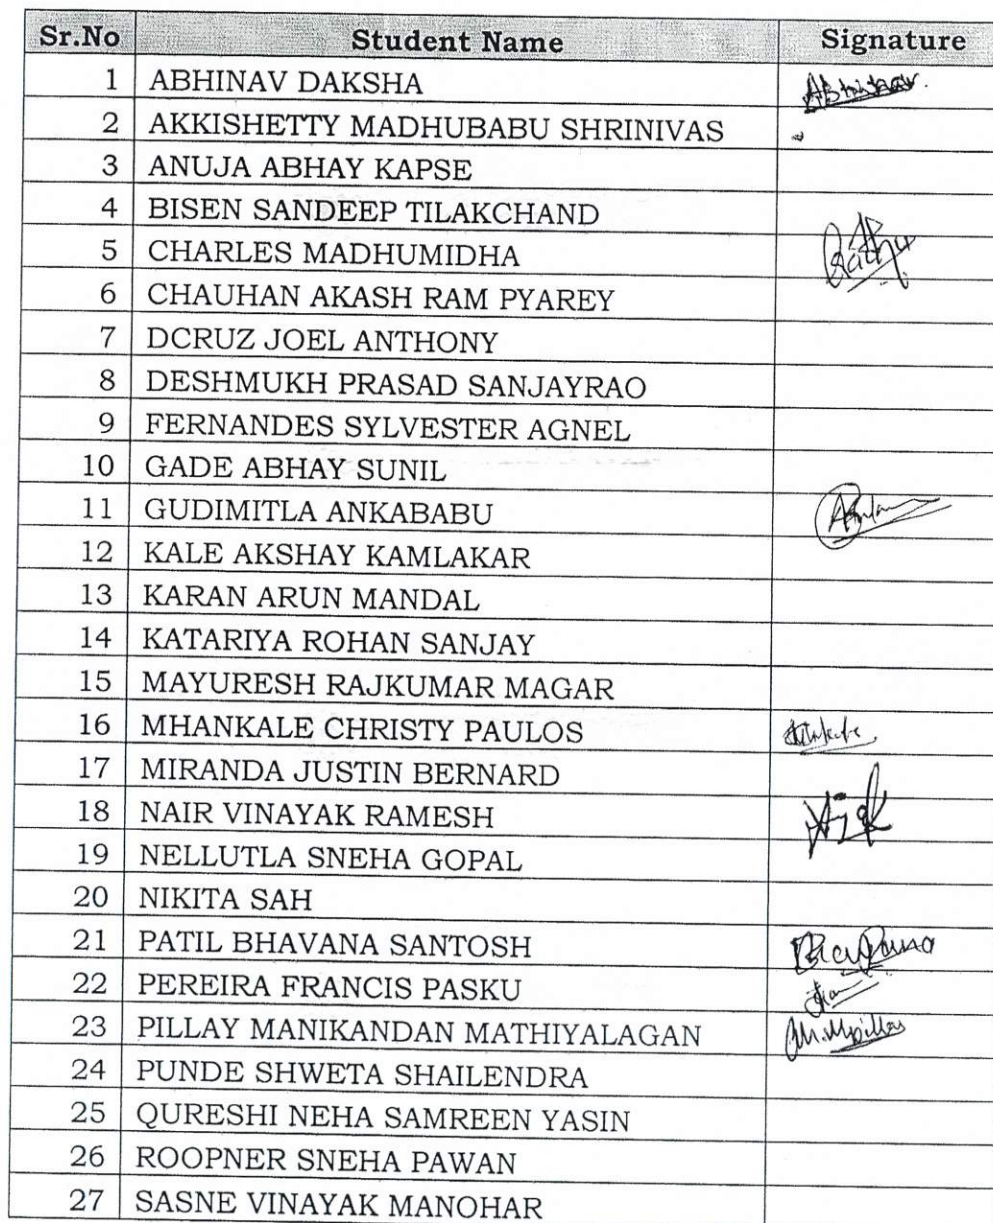 Sr.No Student Name Signature
1 ABHINAV DAKSHA Abhinav
2 AKKISHETTY MADHUBABU SHRINIVAS
3 ANUJA ABHAY KAPSE
4 BISEN SANDEEP TILAKCHAND
5 CHARLES MADHUMIDHA
6 CHAUHAN AKASH RAM PYAREY
7 DCRUZ JOEL ANTHONY
8 DESHMUKH PRASAD SANJAYRAO
9 FERNANDES SYLVESTER AGNEL
10 GADE ABHAY SUNIL
11 GUDIMITLA ANKABABU
12 KALE AKSHAY KAMLAKAR
13 KARAN ARUN MANDAL
14 KATARIYA ROHAN SANJAY
15 MAYURESH RAJKUMAR MAGAR
16 MHANKALE CHRISTY PAULOS
17 MIRANDA JUSTIN BERNARD
18 NAIR VINAYAK RAMESH
19 NELLUTLA SNEHA GOPAL
20 NIKITA SAH
21 PATIL BHAVANA SANTOSH
22 PEREIRA FRANCIS PASKU
23 PILLAY MANIKANDAN MATHIYALAGAN M.Mpillay
24 PUNDE SHWETA SHAILENDRA
25 QURESHI NEHA SAMREEN YASIN
26 ROOPNER SNEHA PAWAN
27 SASNE VINAYAK MANOHAR